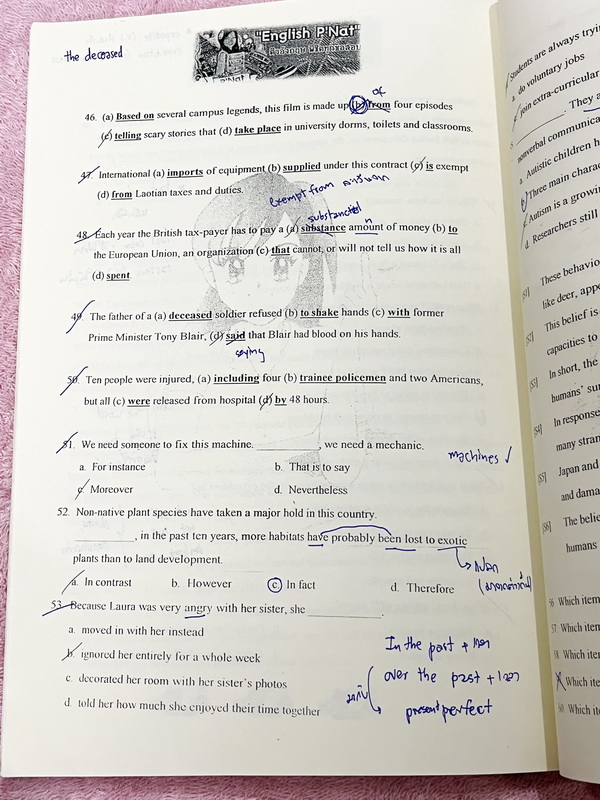 the deceased
"English P'Nat"
of
46. (a) Based on several campus legends, this film is made up (b) from four episodes
(c) telling scary stories that (d) take place in university dorms, toilets and classrooms.
47. International (a) imports of equipment (b) supplied under this contract (c) is exempt
(d) from Laotian taxes and duties.
exempt from
substantial
48. Each year the British tax-payer has to pay a (a) substance amount of money (b) to
the European Union, an organization (c) that cannot, or will not tell us how it is all
(d) spent.
49. The father of a (a) deceased soldier refused (b) to shake hands (c) with former
Prime Minister Tony Blair, (d) said that Blair had blood on his hands.
saying
50. Ten people were injured, (a) including four (b) trainee policemen and two Americans,
but all (c) were released from hospital (d) by 48 hours.
51. We need someone to fix this machine. __________, we need a mechanic.
machines ✓
a. For instance b. That is to say
c. Moreover d. Nevertheless
52. Non-native plant species have taken a major hold in this country.
__________, in the past ten years, more habitats have probably been lost to exotic
plants than to land development.
a. In contrast b. However c. In fact d. Therefore
53. Because Laura was very angry with her sister, she ____________.
a. moved in with her instead
b. ignored her entirely for a whole week
c. decorated her room with her sister's photos
d. told her how much she enjoyed their time together
In the past + เวลา
over the past + เวลา
present perfect
Students are always tryin
a. do voluntary jobs
join extra-curricular
. They a
nonverbal communica
a. Autistic children h
b. Three main charac
Autism is a growin
d. Researchers still
[51] These behavio
like deer, appe
[52] This belief is
capacities to
[53] In short, the
humans' sur
[54] In response
many stran
[55] Japan and
and dama
[56] The belie
humans
56 Which item
57 Which item
58 Which item
Which ite
60 Which ite